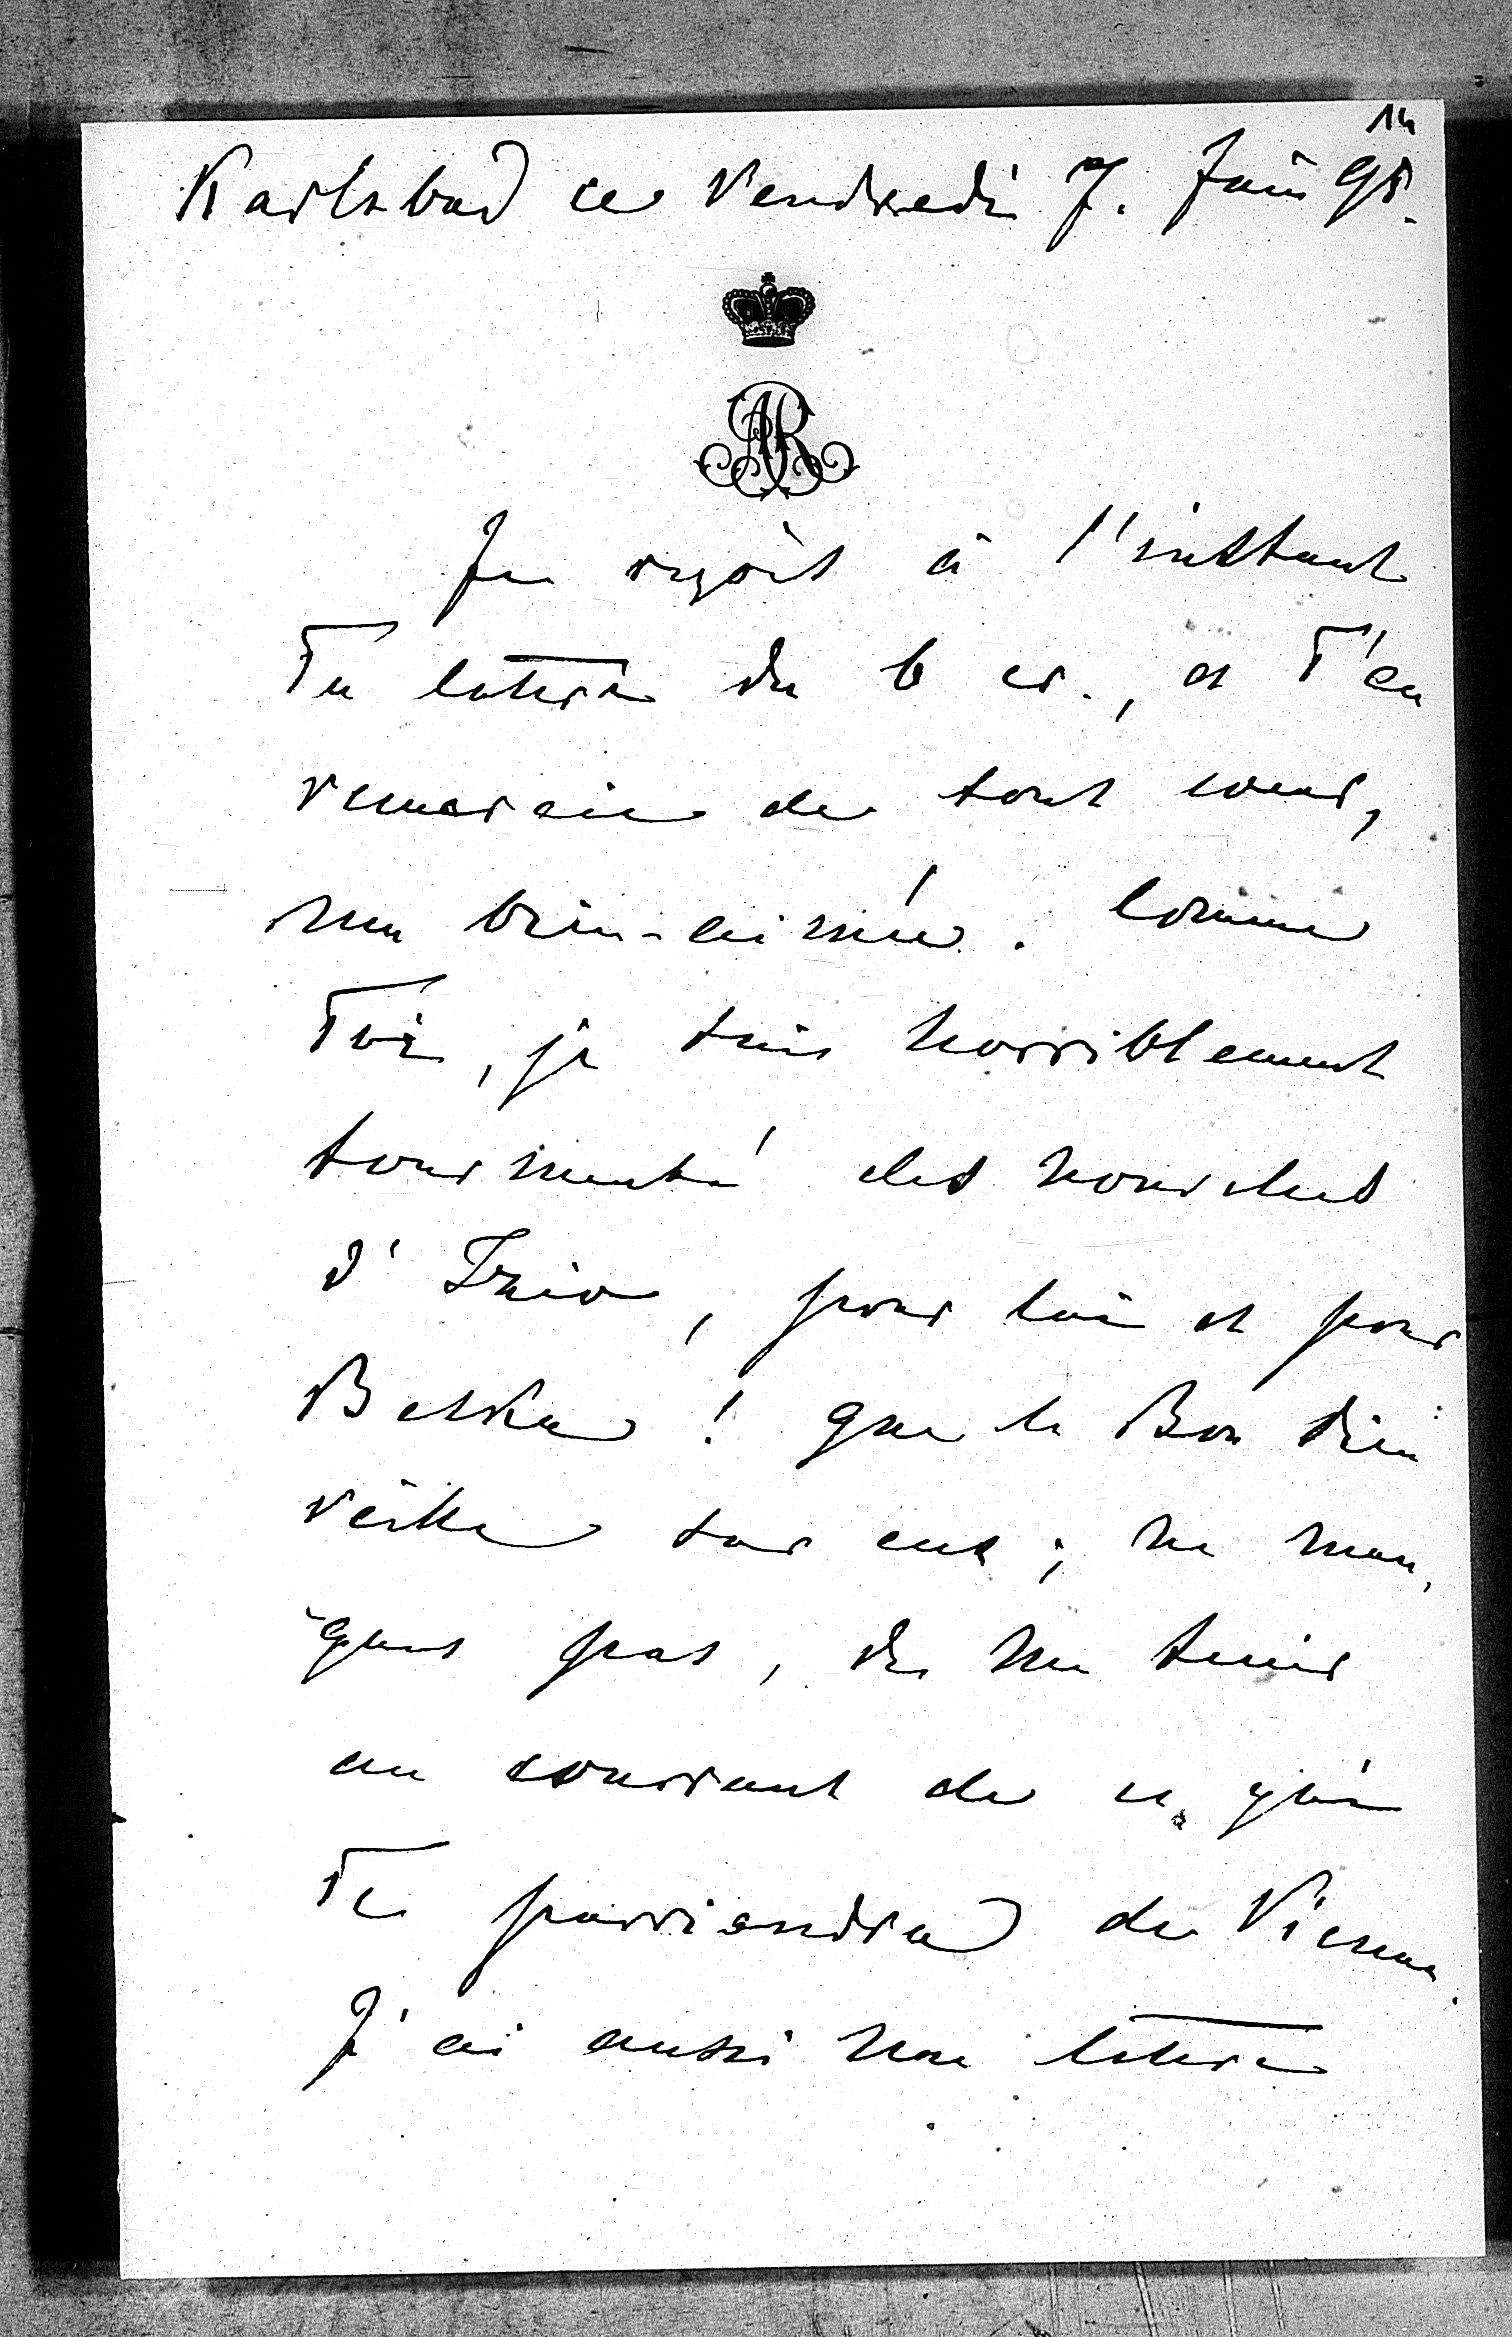 14
Karlsbad ce Vendredi 7. Juin 95.
AR
Je reçois à l'instant
Ta lettre du 6 cr., et T'en
remercie de tout coeur,
ma bien-aimée. Comme
Toi, je suis horriblement
tourmenté des nouvelles
d'Inio, pour lui et pour
Betka! Que le Bon Dieu
veille sur eux; ne man-
ques pas, de me tenir
au courant de ce qui
Te parviendra de Vienne.
J'ai aussi une lettre